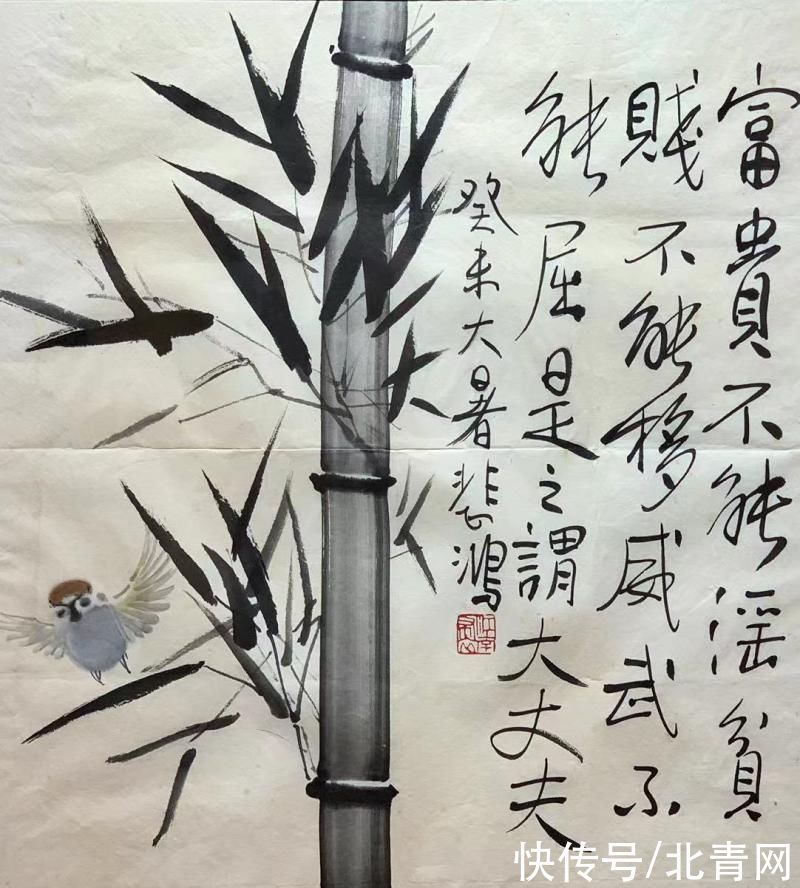 富貴不能淫貧
賤不能移威武不
能屈是之謂大丈夫
癸未大暑悲鴻
快传号/北青网